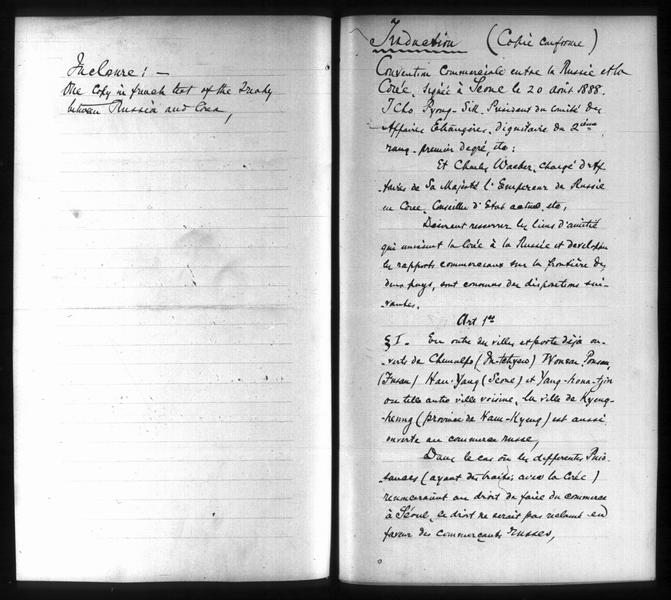 Inclosure: —
One Copy in french text of the Treaty
between Russia and Corea,
Traduction (Copie conforme)
Convention Commerciale entre la Russie et la
Corée, signée à Séoul le 20 août 1888.
Tcho Pyong-Sik, Président du Comité des
Affaires Etrangères, dignitaire du 2ième
rang, premier degré, etc;
Et Charles Waeber, chargé d'Af-
faires de Sa Majesté l'Empereur de Russie
en Corée, Conseiller d'Etat actuel, etc,
Désirant resserrer les liens d'amitié
qui unissent la Corée à la Russie et développer
les rapports commerciaux sur la frontière des
deux pays, sont convenus des dispositions sui-
vantes.
Art 1er
§ I. En outre des villes et ports déjà ou-
verts de Chemulpo (In-tchyen) Wonsan, Pousan,
(Fusan) Han-Yang (Seoul) et Yang-houa-tjin
ou telle autre ville voisine, la ville de Kyeng-
heung (province de Ham-Kyeng) est aussi
ouverte au commerce russe,
Dans le cas où les différentes Puis-
sances (ayant des traités avec la Corée)
renonceraient au droit de faire du commerce
à Séoul, ce droit ne serait pas réclamé en
faveur des commerçants russes,